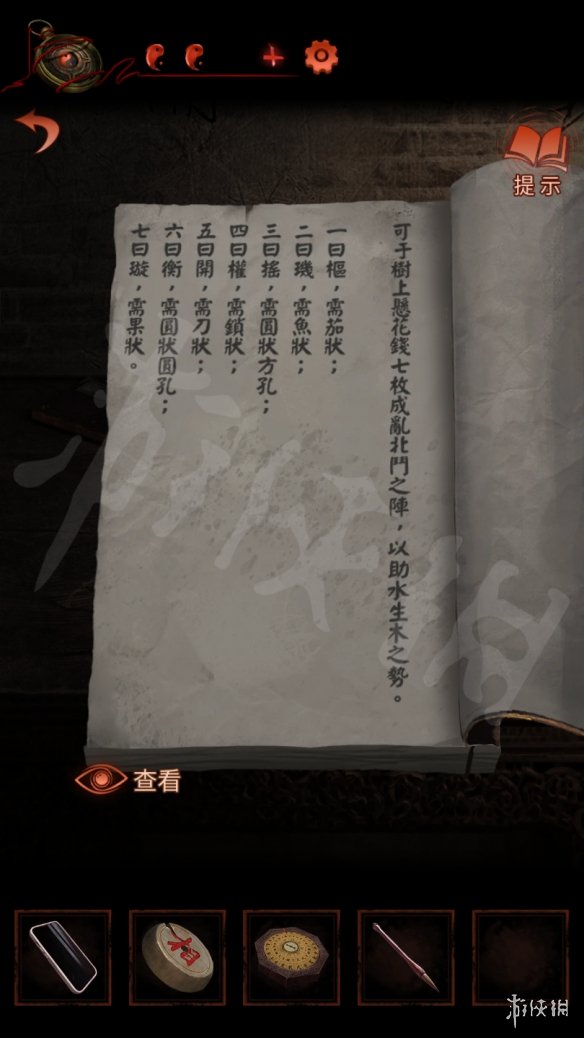 提示
可于樹上懸花錢七枚成亂北鬥之陣，以助水生木之勢。
一曰樞，需茄狀；
二曰璣，需魚狀；
三曰搖，需圓狀方孔；
四曰權，需鎖狀；
五曰開，需刀狀；
六曰衡，需圓狀圓孔；
七曰璇，需果狀。
查看
游侠網